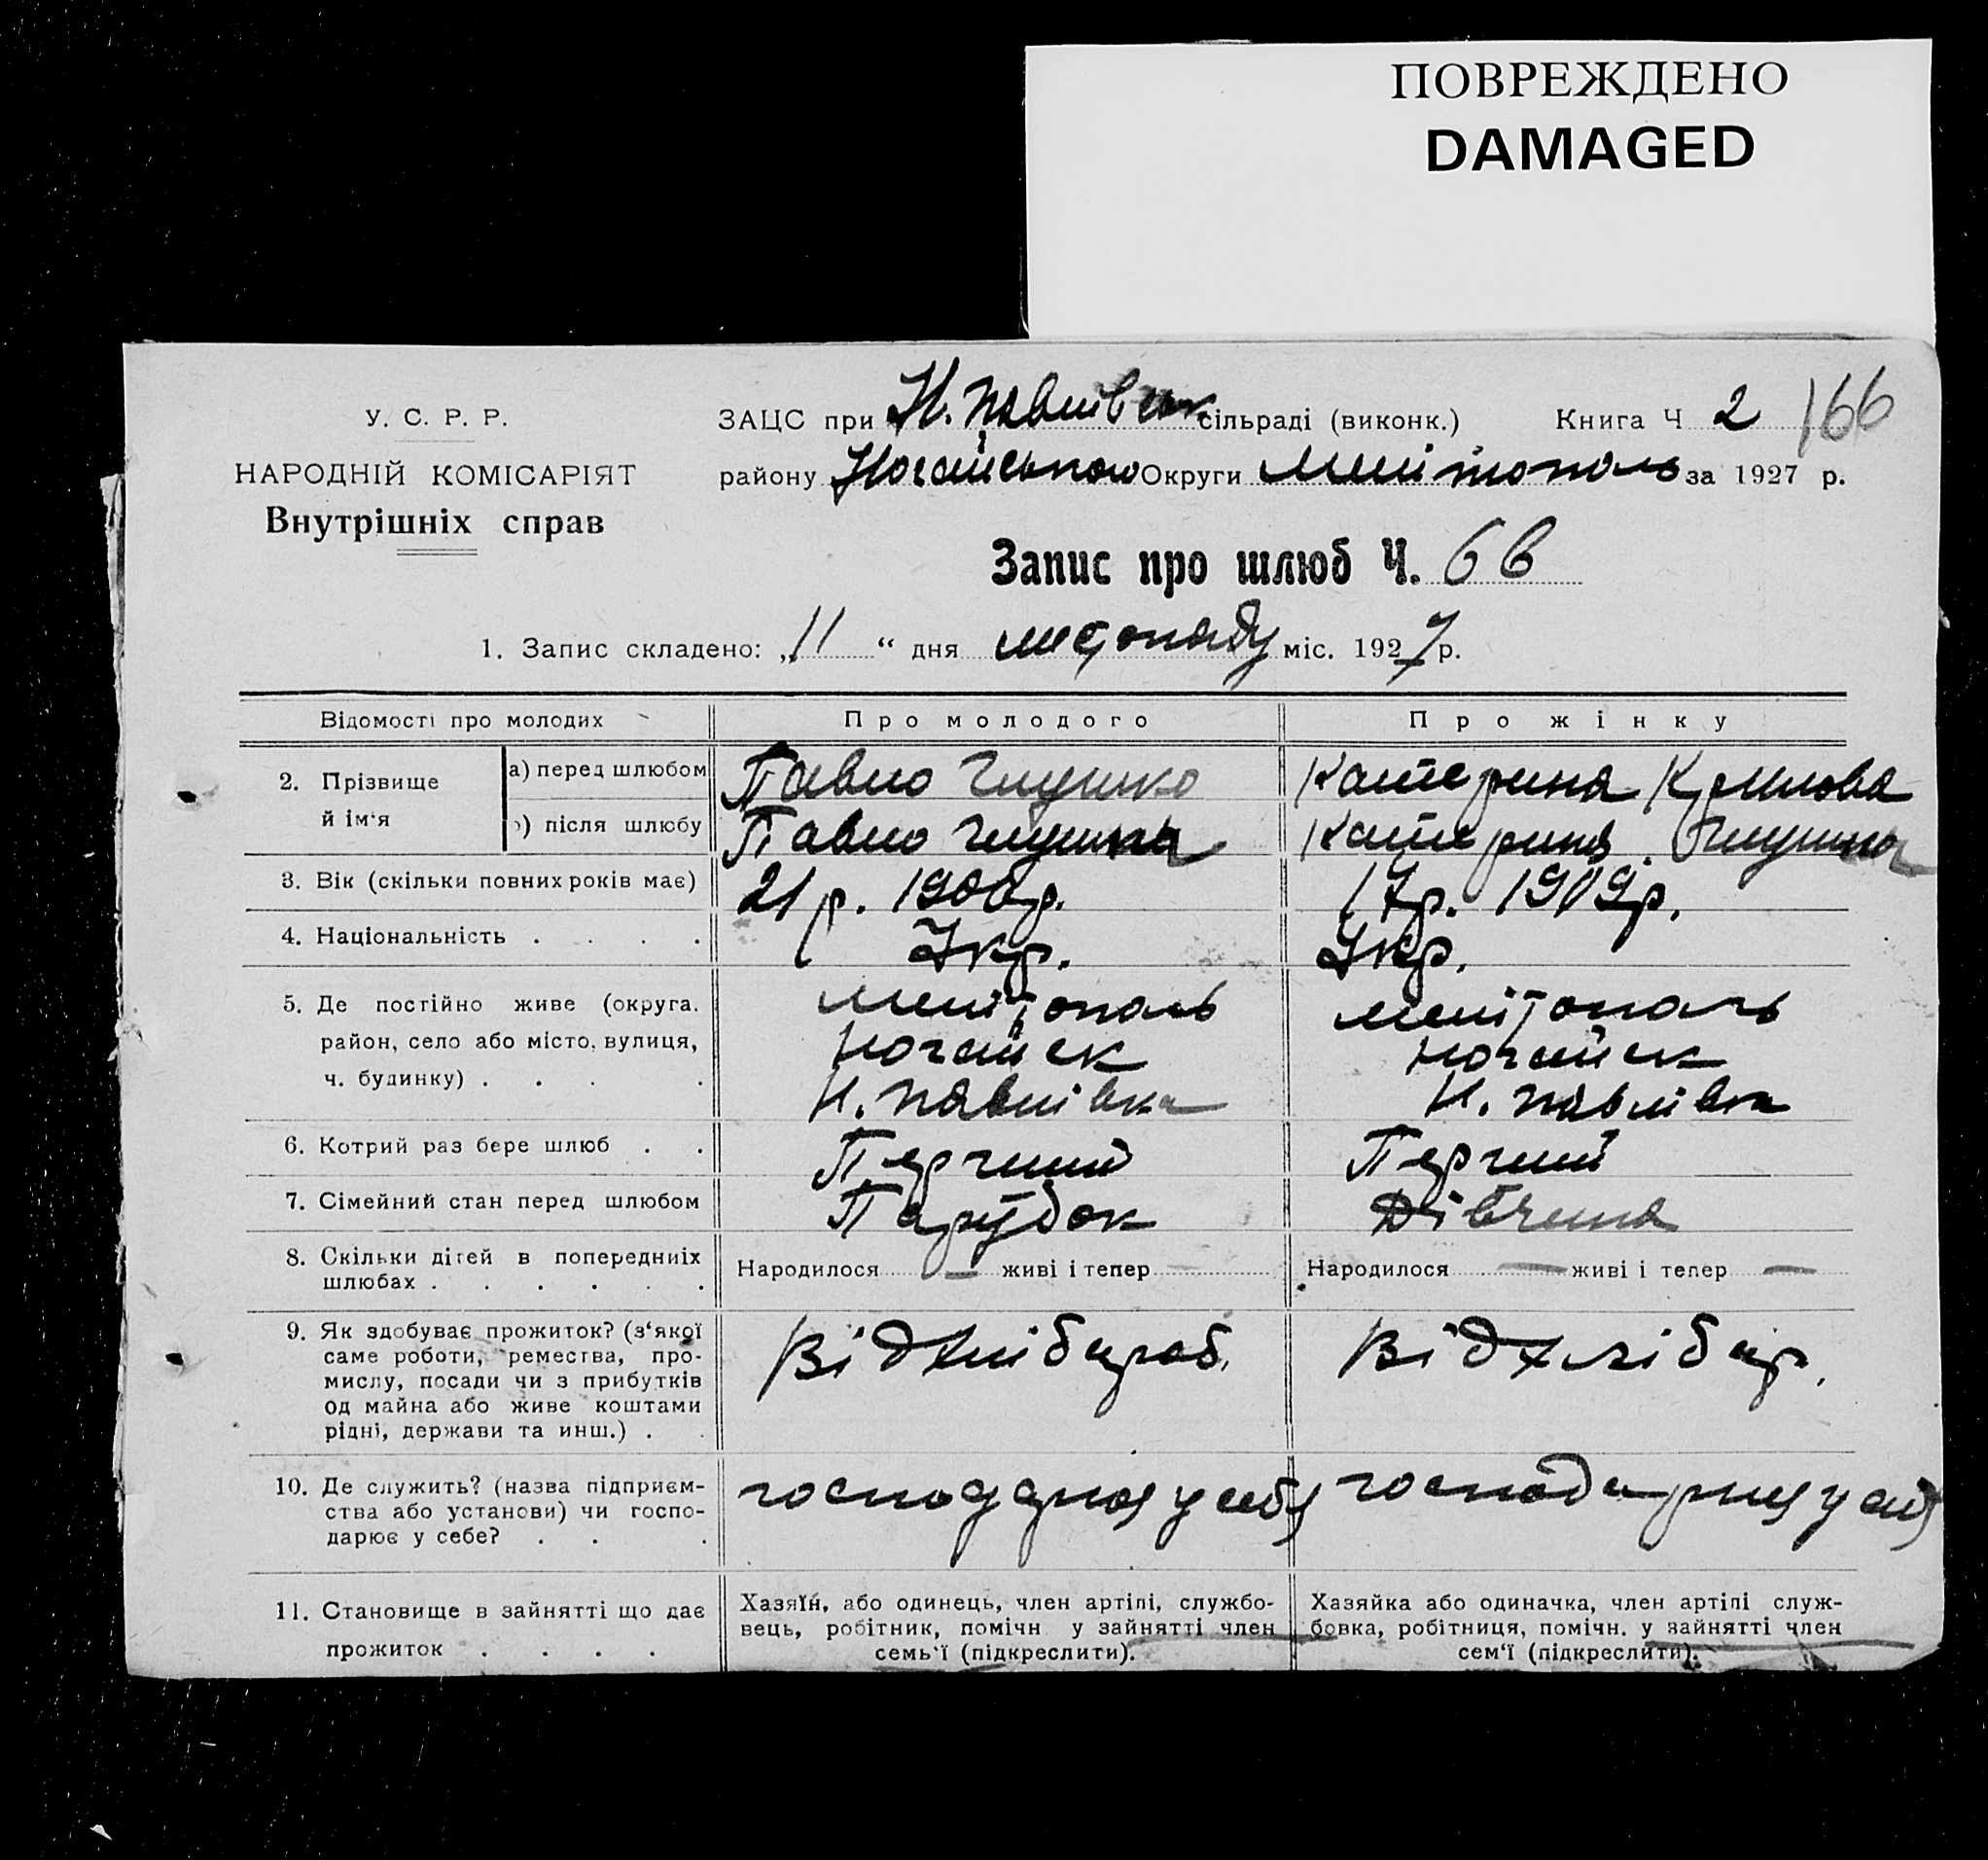 ПОВРЕЖДЕНО
DAMAGED
У. С. Р. Р.
НАРОДНІЙ КОМІСАРІЯТ
Внутрішніх справ
ЗАЦС при Н. Павлівськ сільраді (виконк.) Книга Ч 2 166
району Ногайського Округи Мелітополь за 1927 р.
Запис про шлюб Ч. 66
1. Запис складено: „11“ дня листопаду міс. 1927 р.
Відомості про молодих Про молодого Про жінку
2. Прізвище й ім'я
а) перед шлюбом Павло Глушко Катерина
б) після шлюбу Павло Глушко Катерина Глушко
3. Вік (скільки повних років має) 21 р. 1906 р. 17 р. 1909 р.
4. Національність . . . . Укр. Укр.
5. Де постійно живе (округа. Мелітополь Мелітополь
район, село або місто, вулиця, Ногайск Ногайск
ч. будинку) . . . . Н. Павлівка Н. Павлівка
6. Котрий раз бере шлюб . . Перший Перший
7. Сімейний стан перед шлюбом Парубок Дівчина
8. Скільки дітей в попередніх
шлюбах . . . . . . Народилося — живі і тепер Народилося — живі і тепер —
9. Як здобуває прожиток? (з'якої
саме роботи, ремества, про-
мислу, посади чи з прибутків
од майна або живе коштами
рідні, держави та инш.) .
Від хлібороб. Від хлібор.
10. Де служить? (назва підприєм-
ства або установи) чи госпо-
дарює у себе? . . .
у себе у себе
11. Становище в зайнятті що дає
прожиток . . . .
Хазяїн, або одинець, член артілі, службо-
вець, робітник, помічн у зайнятті член
семь'ї (підкреслити).
Хазяйка або одиначка, член артілі служ-
бовка, робітниця, помічн. у зайнятті член
сем'ї (підкреслити).